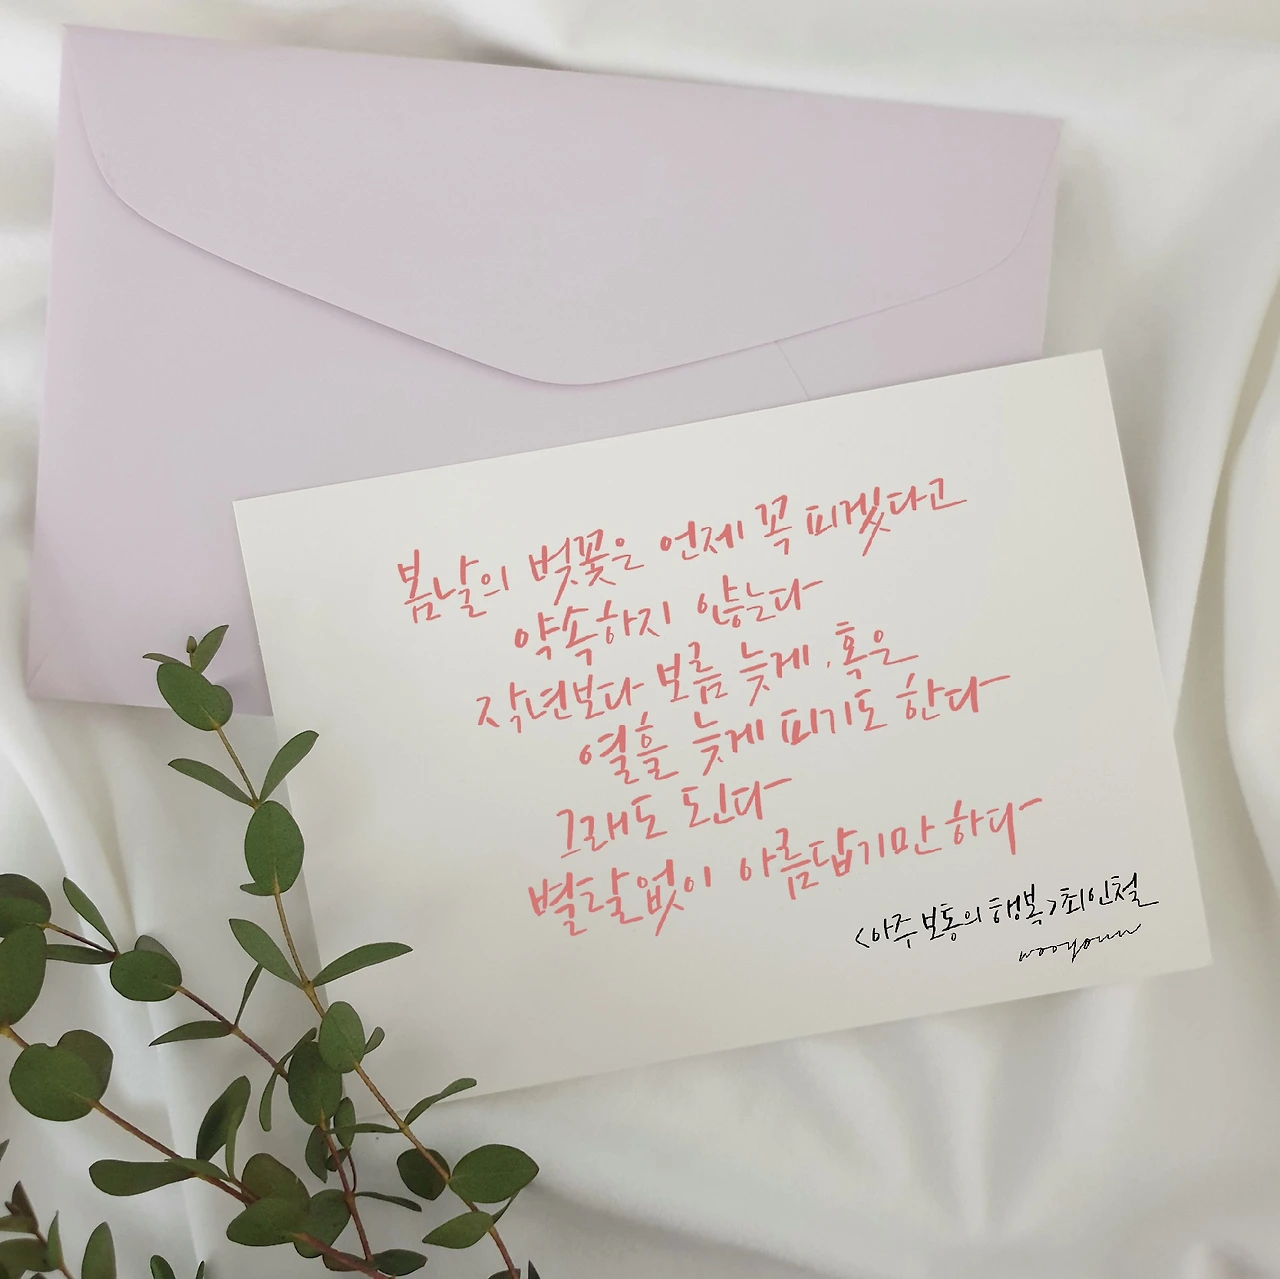 봄날의 벚꽃은 언제 꼭 피겠다고
약속하지 않는다
작년보다 보름 늦게, 혹은
열흘 늦게 피기도 한다
그래도 된다
별탈없이 아름답기만 하다
<아주 보통의 행복> 최인철
wooyoun